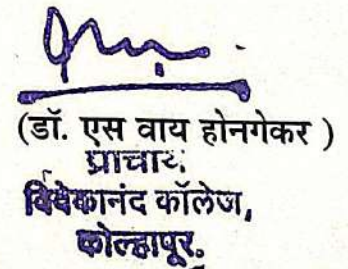 (डॉ. एस वाय होनगेकर )
प्राचार्य
विवेकानंद कॉलेज,
कोल्हापूर.